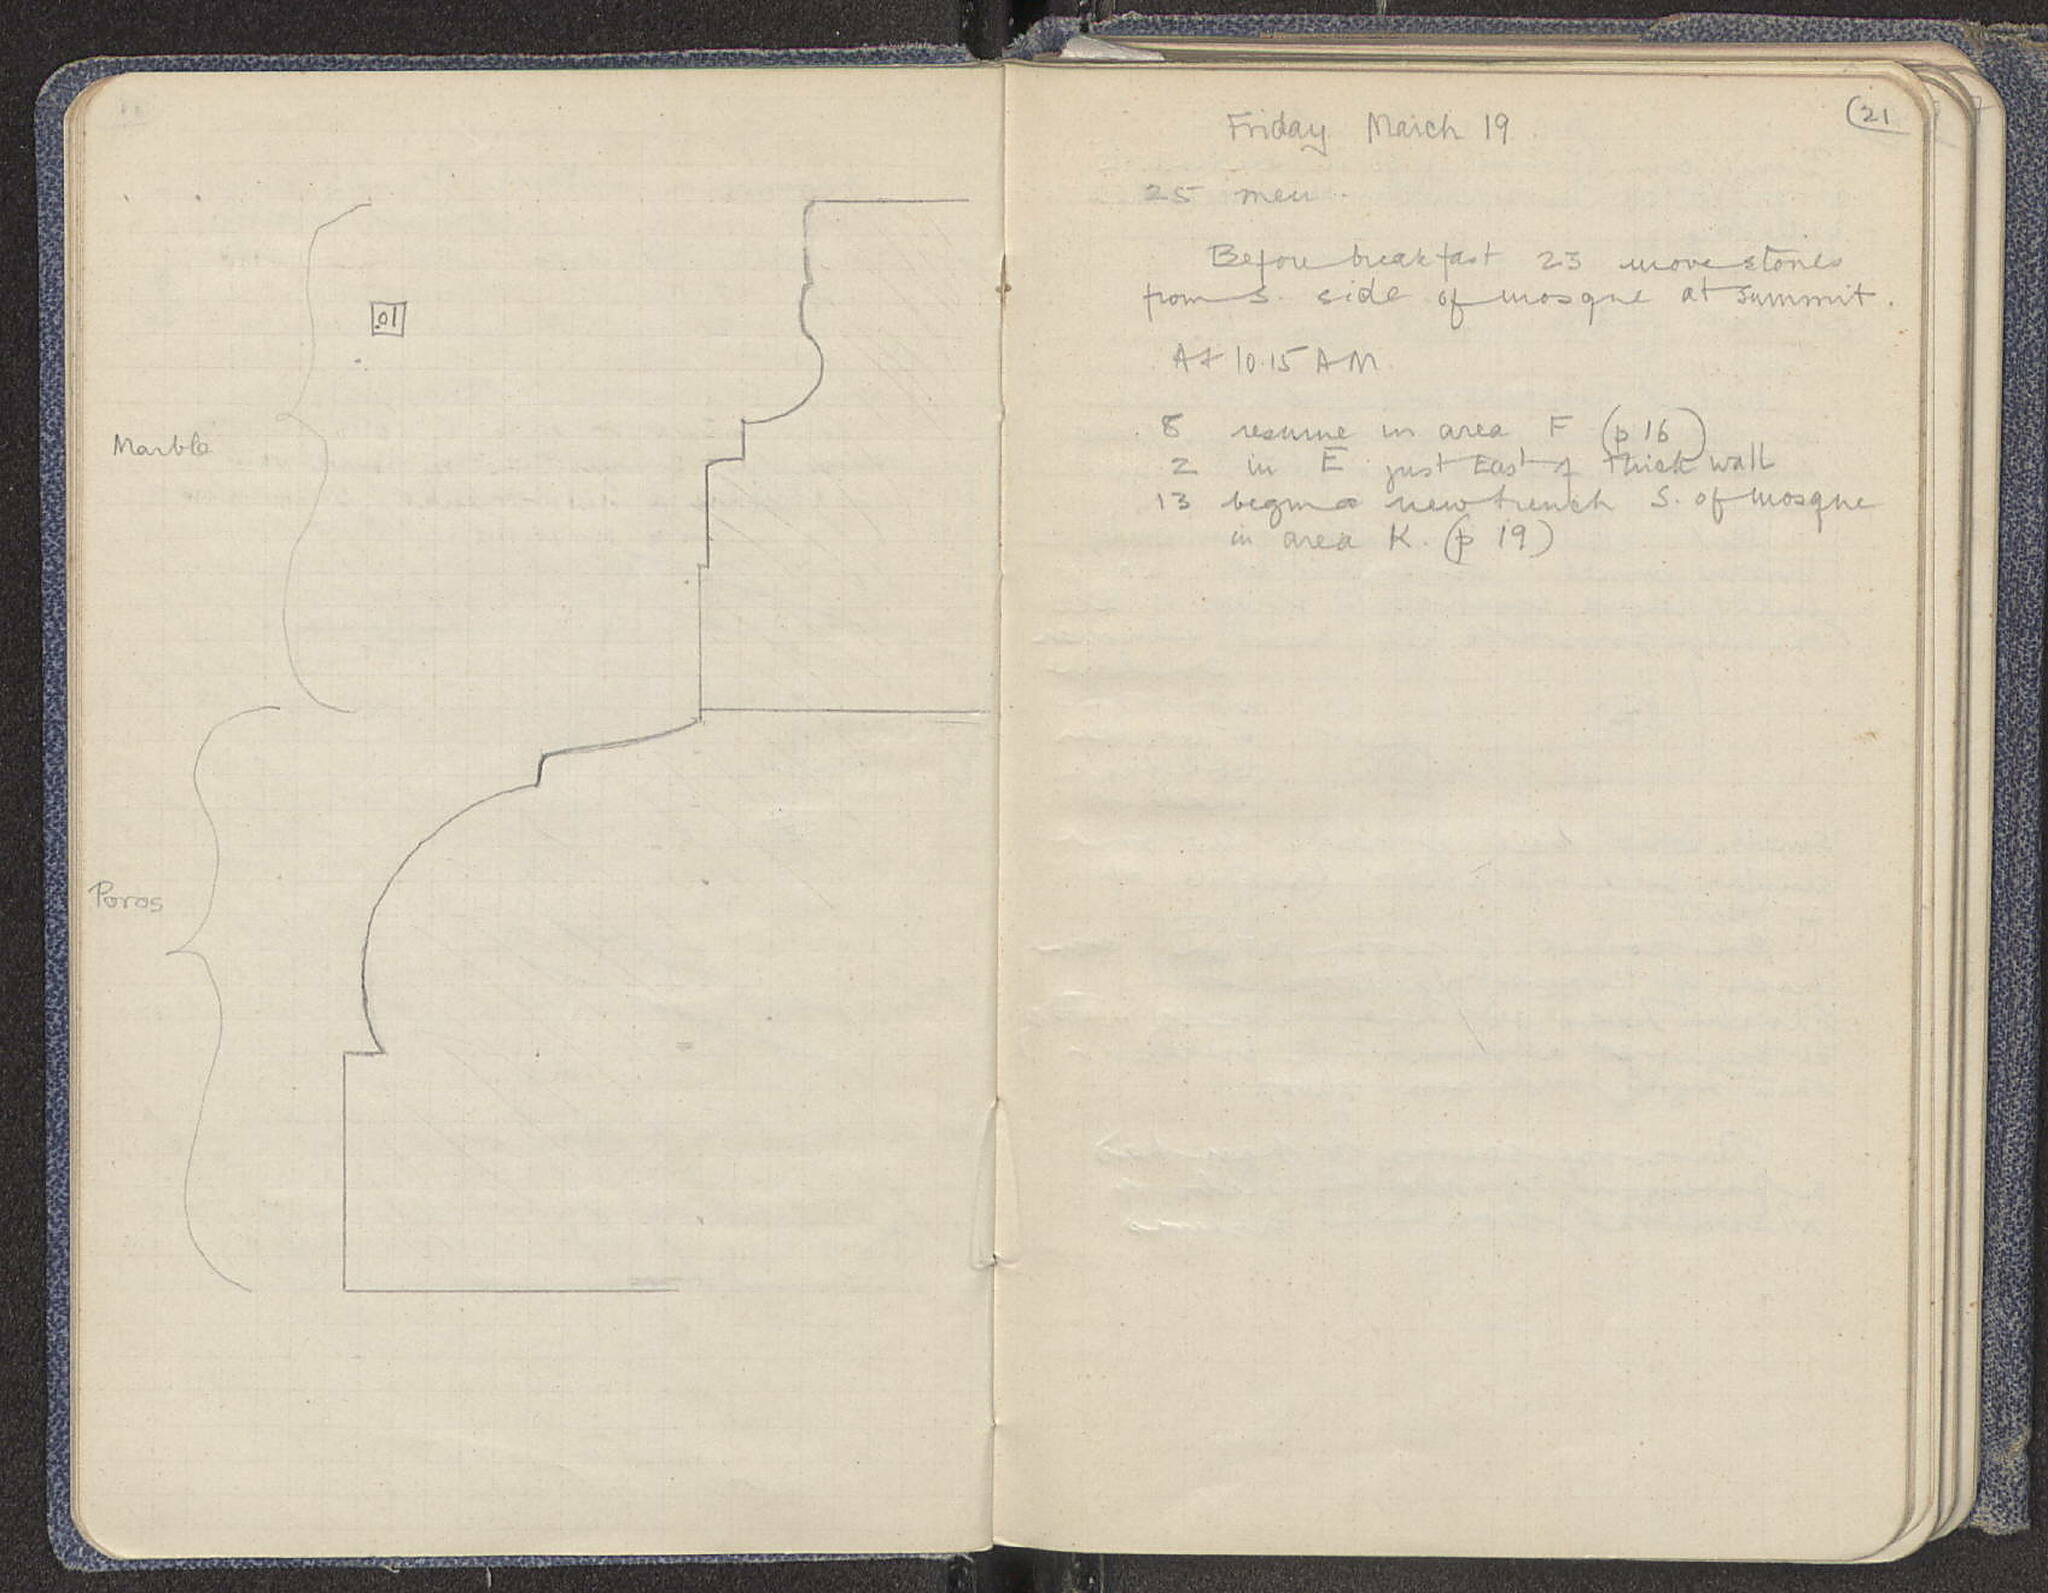 .01
Marble
Poros
(21
Friday March 19.
25 men.
Before breakfast 23 move stones
from S. side of mosque at summit.
At 10.15 AM.
8 resume in area F (p 16)
2 in E just East of thick wall
13 begin a new trench S. of mosque
in area K. (p 19)